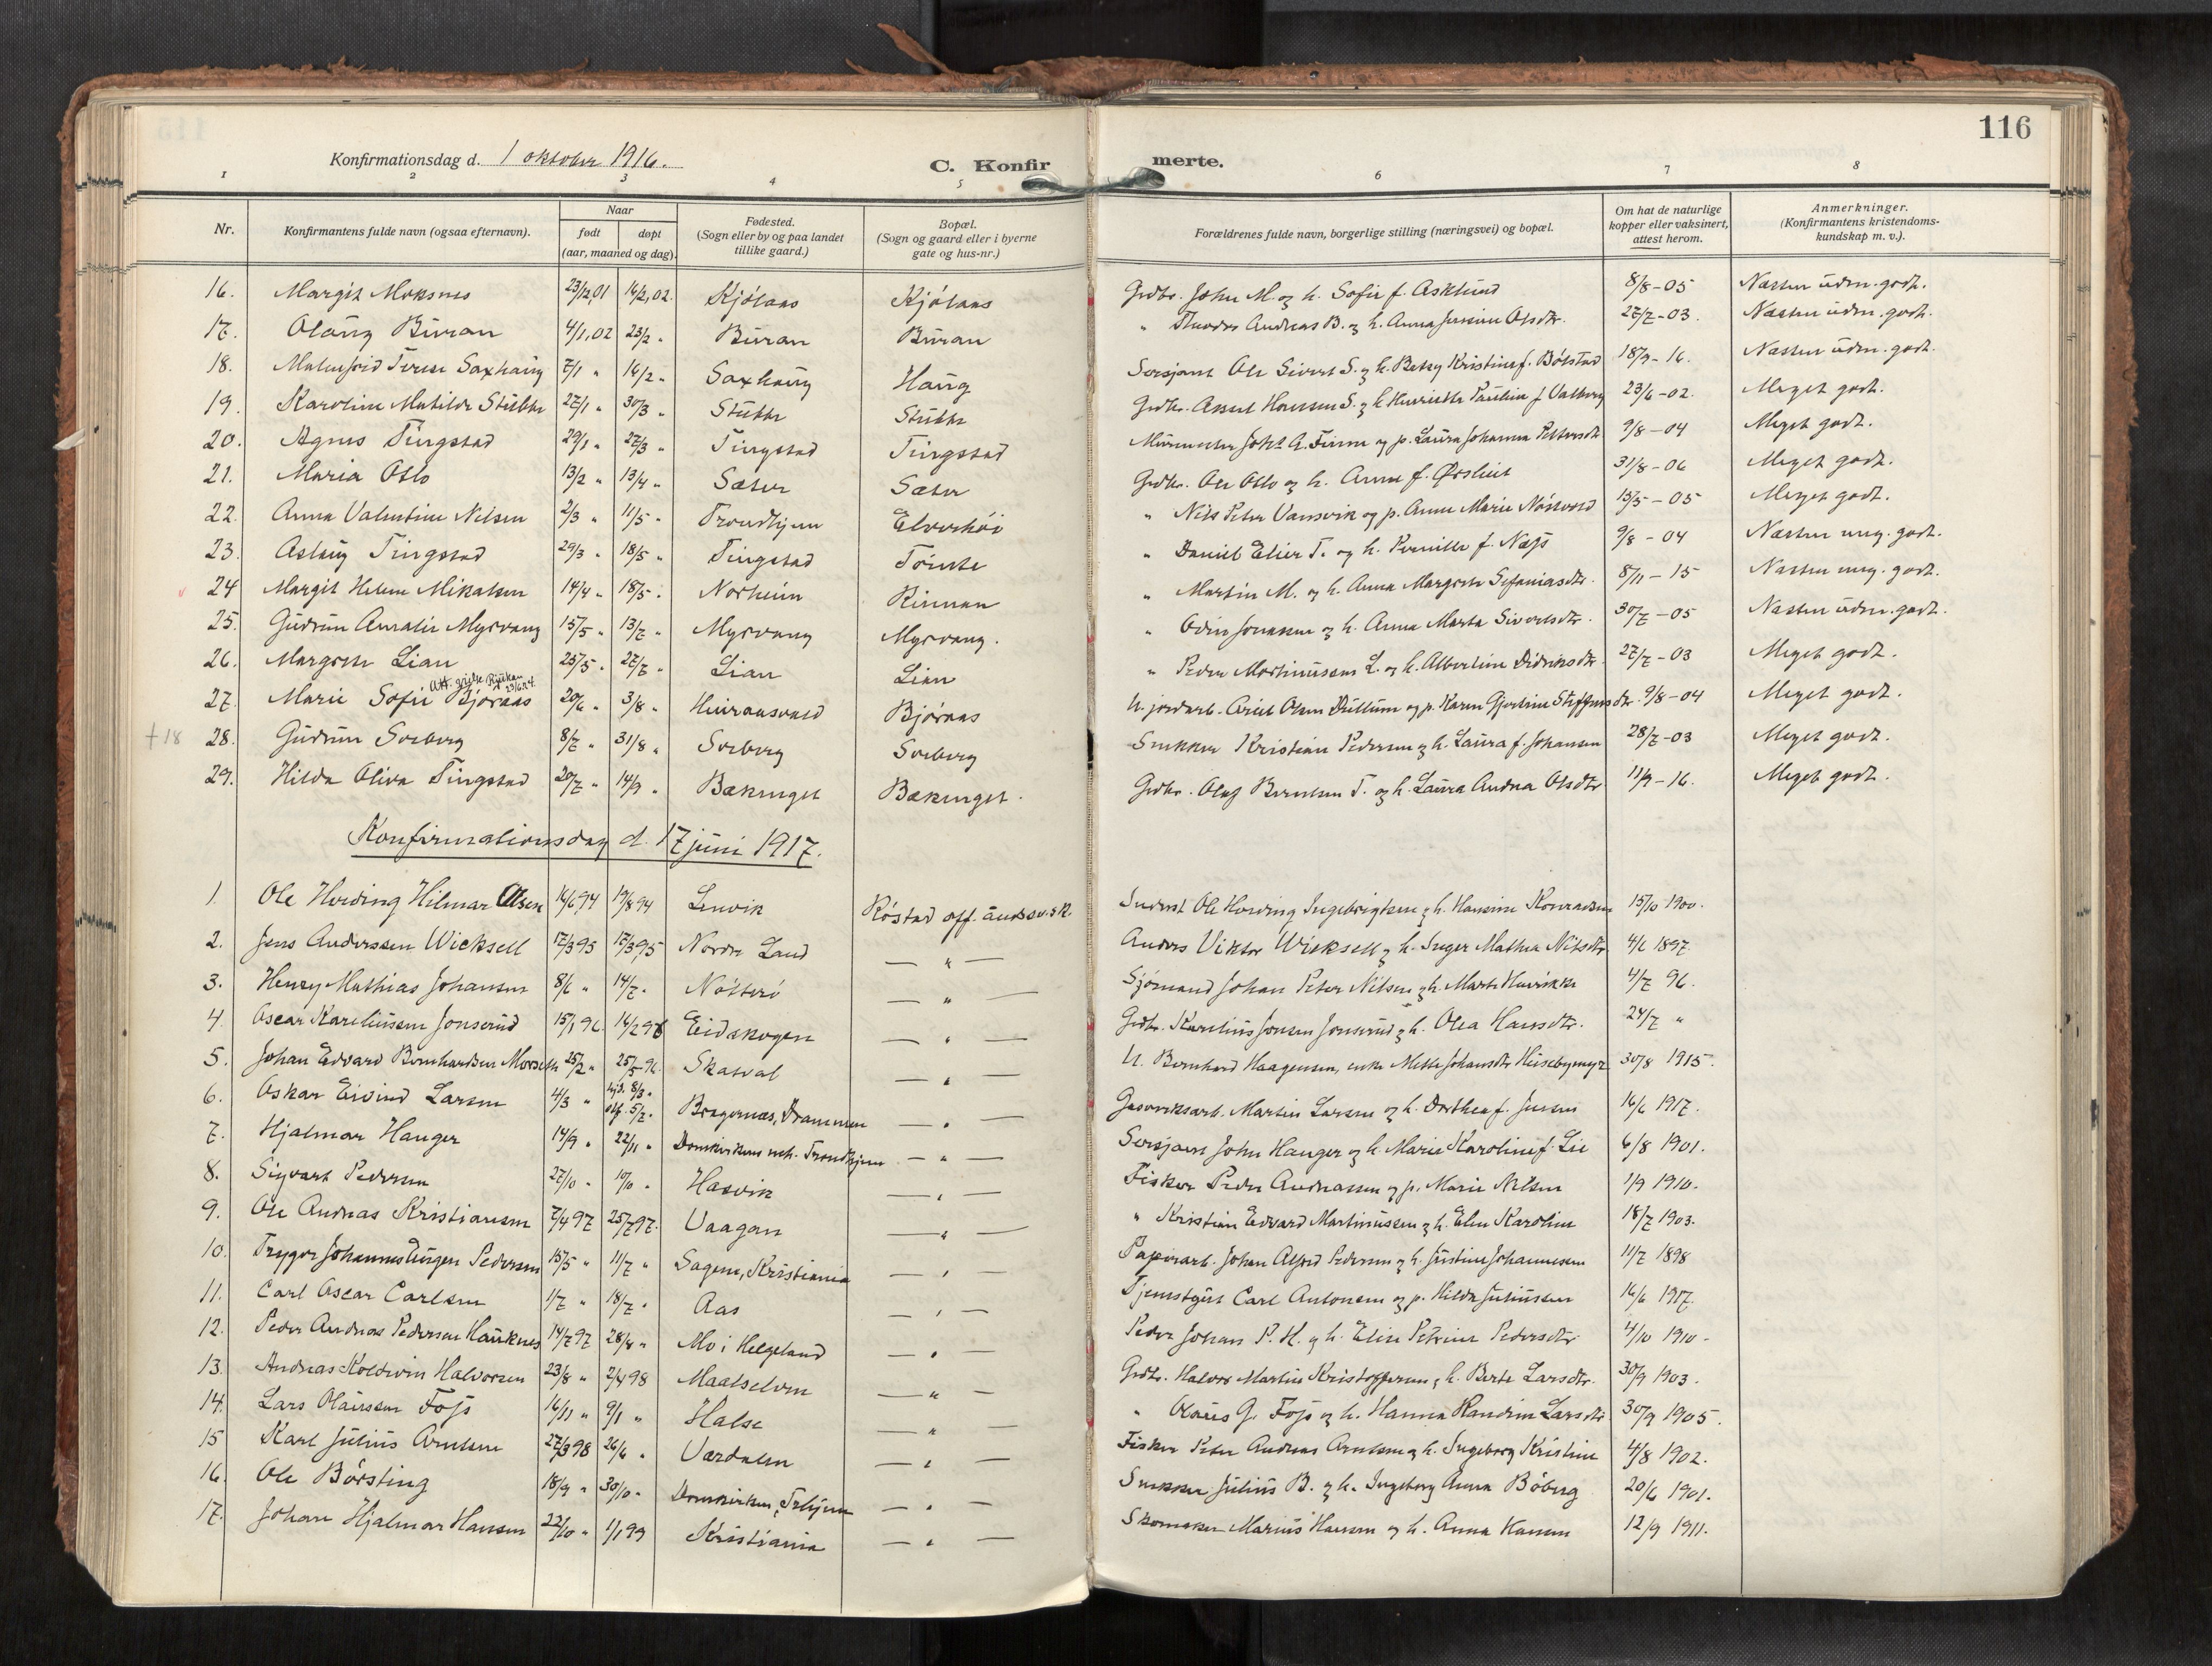 116
Konfirmationsdag d. 1 oktober 1916.
C. Konfirmerte.
1 2 3 4 5 6 7 8
Nr. Konfirmantens fulde navn (ogsaa efternavn). Naar født døpt (aar, maaned og dag). Fødested. (Sogn eller by og paa landet tillike gaard.) Bopæl. (Sogn og gaard eller i byerne gate og hus-nr.) Forældrenes fulde navn, borgerlige stilling (næringsvei) og bopæl. Om hat de naturlige kopper eller vaksinert, attest herom. Anmerkninger. (Konfirmantens kristendoms-kundskap m. v.).
16. Margit Moksnes 23/12,01 16/2,02. Kjölaas Kjölaas Grdbr. John M. og h. Sofie f. Asklund 8/8-05 Næsten udm. godt.
17. Olaug Buran 4/1,02 23/2 „ Buran Buran „ Andreas B. og h. Anna Olsdtr. 27/7-03. Næsten udm. godt.
18. Terese Saxhaug 7/1 „ 16/2 „ Saxhaug Haug Sersjant Ole Sivert S. og h. Betsy Kristine f. Bölstad 18/9-16. Næsten udm. godt.
19. Karoline Matilde Stubbe 27/1 „ 30/3 „ Stubbe Stubbe Grdbr. S. og h. Henriette Pauline f. Valberg 23/6-02. Meget godt.
20. Agnes Tingstad 29/1 „ 27/3 „ Tingstad Tingstad Murmester Johs A. Finne og p. Laura Johanna Pettersdt. 9/8-04 Meget godt.
21. Maria Oslo 13/2 „ 13/4 „ Sæter Sæter Grdbr. Ole Oslo og h. Anne f. 31/8-06 Meget godt.
22. Anna Valentine Nilsen 2/3 „ 11/5 „ Trondhjem Elverhöi „ Nils Peter Vansvik og p. Anne Marie 15/5-05 Meget godt.
23. Aslaug Tingstad 29/3 „ 18/5 „ Tingstad Tömte „ Daniel Elier T. og h. Pernille f. Næss 9/8-04 Næsten meg. godt.
24 Margit Helene Mikalsen 14/4 „ 18/5 „ Norheim Rinnan „ Martin M. og h. Anna Margrete Stefaniasdtr. 8/11-15 Næsten meg. godt.
25. Gudrun Amalie Myrvang 15/5 „ 13/7 „ Myrvang Myrvang. „ Odin Jonassen og h. Anna Marta Sivertsdtr. 30/7-05 Næsten udm. godt.
26. Margrete Lian 25/5 „ 27/7 „ Lian Lian „ Peder Mortinussen L. og h. Albertine Didriksdtr. 27/7-03 Meget godt.
Att. gielse Rjukan 23/6 24.
27. Marie Sofie Björaas 20/6 „ 3/8 „ Björaas U. jordarb. Olsen Dullum og p. Karen Gjertine Steffensdtr. 9/8-04 Meget godt.
+18 28. Gudrun Sorberg 8/7 „ 31/8 „ Sorberg Sorberg Snekker Kristian Pedersen og h. Laura f. Johansen 28/7-03 Meget godt.
29. Hilda Oliva Tingstad 20/7 „ 14/9 „ Bækenget Bækenget. Grdbr. Olaf Berntsen T. og h. Laura Andrea Olsdtr 11/9-16. Meget godt.
Konfirmationsdag d. 17 juni 1917.
1. Ole Hording Hilmar Olsen 16/6 94 19/8 94 Lenvik Röstad off. andssv.sk. Ole Hording Ingebrigtsen og h. Hansine Konradsen 15/10 1900.
2. Jens Anderssen Wicksell 12/3 95 17/3 95 Nordre Land — „ — Anders Viktor Wicksell og h. Inger Mathea Nilsdtr 4/6 1897.
3. Henry Mathias Johansen 8/6 „ 14/7 „ Nötterö — „ — Sjömand Johan Peter Nilsen og h. Marte Henrikke 4/7 96.
4. Oscar Kareliussen Jonsrud 15/1 96. 16/2 96 Eidskogen — „ — Grdbr. Karelius Jonsen Jonsrud og h. Olea Hansdtr. 24/7 „
5. Johan Edvard Bernhardsen Morseth 25/2 „ 25/5 96. Skatval — „ — U. Bernhard Haagensen, enke Mette Johansdtr 30/8 1915.
6. Oskar Eivind Larsen 4/3 „ hjd. 8/3 „ off. 5/7 „ Bragernæs, Drammen — „ — Gasverksarb. Martin Larsen og h. Dorthea f. Jensen 16/6 1917.
7. Hjalmar Hanger 14/9 „ 22/11 „ Domkirkens meh. Trondhjem — „ — Sersjant John Hanger og h. Marie Karoline f. Lie 6/8 1901.
8. Sigvart Pedersen 27/10 „ 10/10 „ Hasvik — „ — Fisker Peder Andreassen og p. Marie Nilsen 1/9 1910.
9. Ole Andreas Kristiansen 7/4 97 25/7 97. Vaagan — „ — „ Kristian Edvard Martinussen og h. Elen Karoline 18/7 1903.
10. Trygve Johannes Jürgen Pedersen 15/5 „ 11/7 „ Sagene, Kristiania — „ — Papirarb. Johan Alfred Pedersen og h. Justine Johannessen 11/7 1898
11. Carl Oscar Carlsen 1/7 „ 18/7 „ Aas — „ — Tjenstgut Carl Antonsen og p. Hilda Juliussen 16/6 1917.
12. Peder Andreas Pedersen Hauknes 14/7 97 28/8 „ Mo i Helgeland — „ — Peder Johan P. H. og h. Elise Petrine Pedersdtr. 4/10 1910.
13. Andreas Koldevin Halvorsen 23/8 „ 2/4 98 Maalselven — „ — Grdbr. Halvor Martin Kristoffersen og h. Berte Larsdtr. 30/9 1903.
14. Lars Olaussen Foss 16/11 „ 9/1 „ Halse — „ „ Olaus G. Foss og h. Hanna Larsdtr. 30/9 1905.
15 Karl Julius Arntsen 27/3 98 26/6 „ Værdalen — „ — Fisker Peter Andreas Arntsen og h. Ingeborg Kristine 4/8 1902.
16. Ole Börsting 18/9 „ 30/10 „ Domkirken, Trhjem — „ — Snekker Julius B. og h. Ingeborg Anna Böberg 20/6 1901.
17. Johan Hjalmar Hansen 22/10 „ 1/1 99 Kristiania — „ — Skomaker Marius Hansen og h. Anna Hansen 12/9 1911.